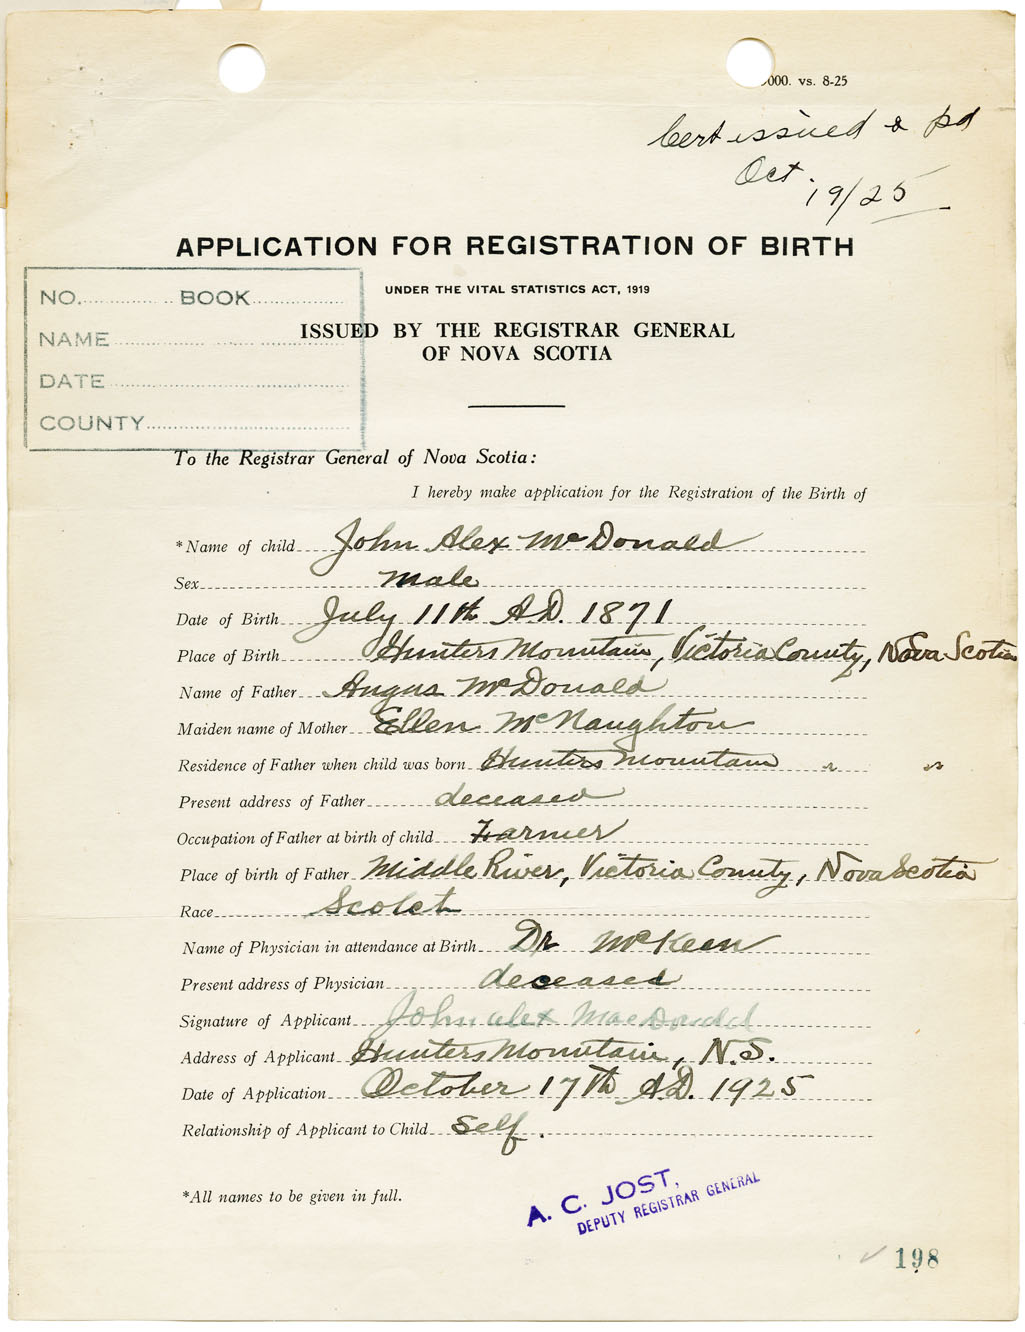 000. vs. 8-25
Cert issued & pd
Oct. 19/25
APPLICATION FOR REGISTRATION OF BIRTH
UNDER THE VITAL STATISTICS ACT, 1919
ISSUED BY THE REGISTRAR GENERAL
OF NOVA SCOTIA
NO. BOOK
NAME
DATE
COUNTY
To the Registrar General of Nova Scotia:
I hereby make application for the Registration of the Birth of
*Name of child John Alex McDonald
Sex male
Date of Birth July 11th A.D. 1871
Place of Birth Hunters Mountain, Victoria County, Nova Scotia
Name of Father Angus McDonald
Maiden name of Mother Ellen McNaughton
Residence of Father when child was born Hunters Mountain " "
Present address of Father deceased
Occupation of Father at birth of child Farmer
Place of birth of Father Middle River, Victoria County, Nova Scotia
Race Scotch
Name of Physician in attendance at Birth Dr McKeen
Present address of Physician deceased
Signature of Applicant John Alex MacDonald
Address of Applicant Hunters Mountain, N.S.
Date of Application October 17th A.D. 1925
Relationship of Applicant to Child Self.
*All names to be given in full.
A. C. JOST,
DEPUTY REGISTRAR GENERAL
198